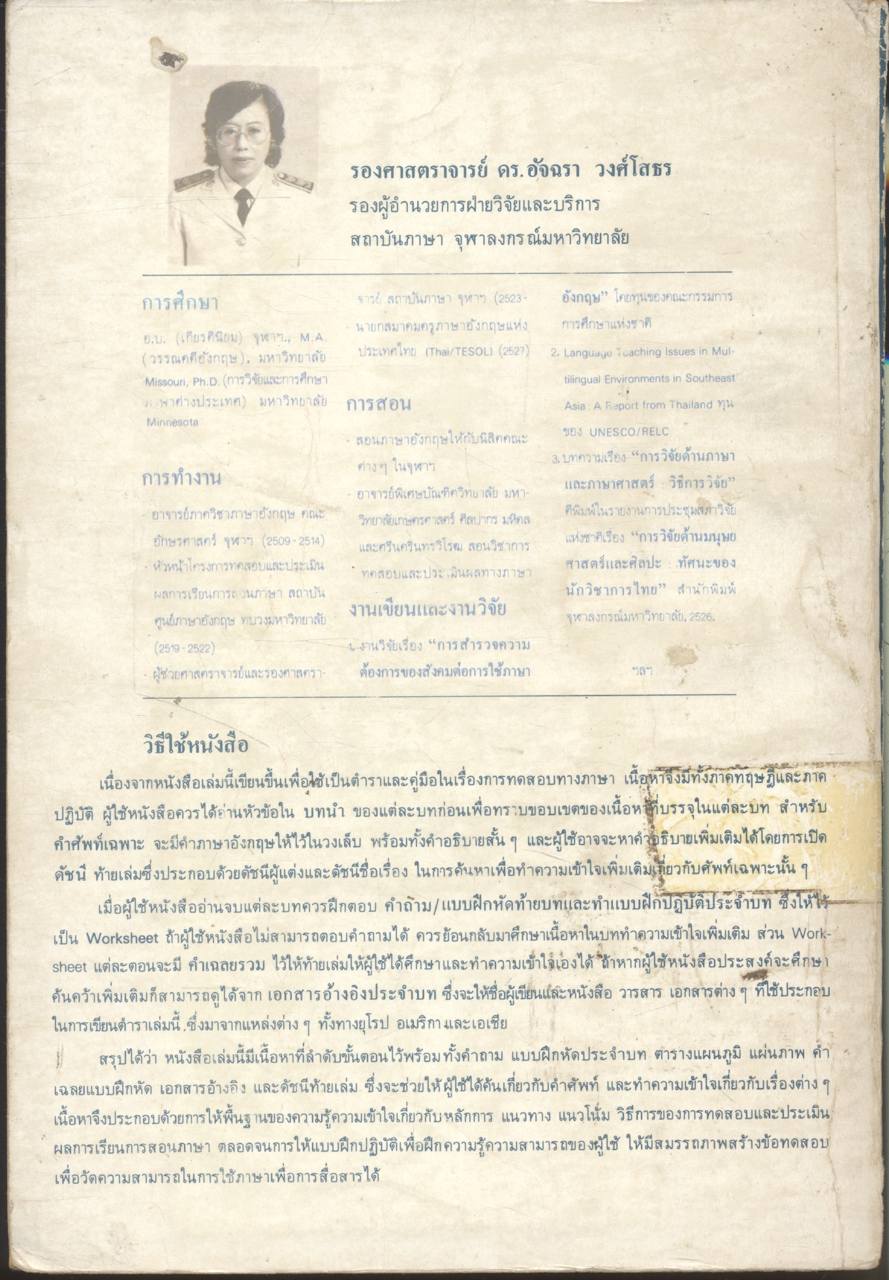 รองศาสตราจารย์ ดร.อัจฉรา วงศ์โสธร
รองผู้อำนวยการฝ่ายวิจัยและบริการ
สถาบันภาษา จุฬาลงกรณ์มหาวิทยาลัย
การศึกษา
อ.บ. (เกียรตินิยม) จุฬาฯ., M.A.
(วรรณคดีอังกฤษ), มหาวิทยาลัย
Missouri, Ph.D. (การวิจัยและการศึกษา
ภาษาต่างประเทศ) มหาวิทยาลัย
Minnesota
การทำงาน
· อาจารย์ภาควิชาภาษาอังกฤษ คณะ
อักษรศาสตร์ จุฬาฯ (2509-2514)
· หัวหน้าโครงการทดสอบและประเมิน
ผลการเรียนการสอนภาษา สถาบัน
ศูนย์ภาษาอังกฤษ ทบวงมหาวิทยาลัย
(2519-2522)
· ผู้ช่วยศาสตราจารย์และรองศาสตรา-
จารย์ สถาบันภาษา จุฬาฯ (2523-
· นายกสมาคมครูภาษาอังกฤษแห่ง
ประเทศไทย (Thai/TESOL) (2527)
การสอน
· สอนภาษาอังกฤษให้กับนิสิตคณะ
ต่างๆ ในจุฬาฯ
· อาจารย์พิเศษบัณฑิตวิทยาลัย มหา-
วิทยาลัยเกษตรศาสตร์ ศิลปากร มหิดล
และศรีนครินทรวิโรฒ สอนวิชาการ
ทดสอบและประเมินผลทางภาษา
งานเขียนและงานวิจัย
1. งานวิจัยเรื่อง “การสำรวจความ
ต้องการของสังคมต่อการใช้ภาษา
อังกฤษ” โดยทุนของคณะกรรมการ
การศึกษาแห่งชาติ
2. Language Teaching Issues in Mul-
tilingual Environments in Southeast
Asia : A Report from Thailand ทุน
ของ UNESCO/RELC
3. บทความเรื่อง “การวิจัยด้านภาษา
และภาษาศาสตร์ : วิธีการวิจัย”
ตีพิมพ์ในรายงานการประชุมสภาวิจัย
แห่งชาติเรื่อง “การวิจัยด้านมนุษย
ศาสตร์และศิลปะ : ทัศนะของ
นักวิชาการไทย” สำนักพิมพ์
จุฬาลงกรณ์มหาวิทยาลัย, 2526.
ฯลฯ
วิธีใช้หนังสือ
เนื่องจากหนังสือเล่มนี้เขียนขึ้นเพื่อใช้เป็นตำราและคู่มือในเรื่องการทดสอบทางภาษา เนื้อหาจึงมีทั้งภาคทฤษฎีและภาค
ปฏิบัติ ผู้ใช้หนังสือควรได้อ่านหัวข้อใน บทนำ ของแต่ละบทก่อนเพื่อทราบขอบเขตของเนื้อหาที่บรรจุในแต่ละบท สำหรับ
คำศัพท์เฉพาะ จะมีคำภาษาอังกฤษให้ไว้ในวงเล็บ พร้อมทั้งคำอธิบายสั้น ๆ และผู้ใช้อาจจะหาคำอธิบายเพิ่มเติมได้โดยการเปิด
ดัชนี ท้ายเล่มซึ่งประกอบด้วยดัชนีผู้แต่งและดัชนีชื่อเรื่อง ในการค้นหาเพื่อทำความเข้าใจเพิ่มเติมเกี่ยวกับศัพท์เฉพาะนั้น ๆ
เมื่อผู้ใช้หนังสืออ่านจบแต่ละบทควรฝึกตอบ คำถาม/แบบฝึกหัดท้ายบทและทำแบบฝึกปฏิบัติประจำบท ซึ่งให้ไว้
เป็น Worksheet ถ้าผู้ใช้หนังสือไม่สามารถตอบคำถามได้ ควรย้อนกลับมาศึกษาเนื้อหาในบททำความเข้าใจเพิ่มเติม ส่วน Work-
sheet แต่ละตอนจะมี คำเฉลยรวม ไว้ให้ท้ายเล่มให้ผู้ใช้ได้ศึกษาและทำความเข้าใจเองได้ ถ้าหากผู้ใช้หนังสือประสงค์จะศึกษา
ค้นคว้าเพิ่มเติมก็สามารถดูได้จาก เอกสารอ้างอิงประจำบท ซึ่งจะให้ชื่อผู้เขียนและหนังสือ วารสาร เอกสารต่าง ๆ ที่ใช้ประกอบ
ในการเขียนตำราเล่มนี้ ซึ่งมาจากแหล่งต่าง ๆ ทั้งทางยุโรป อเมริกาและเอเชีย
สรุปได้ว่า หนังสือเล่มนี้มีเนื้อหาที่ลำดับขั้นตอนไว้พร้อมทั้งคำถาม แบบฝึกหัดประจำบท ตารางแผนภูมิ แผ่นภาพ คำ
เฉลยแบบฝึกหัด เอกสารอ้างอิง และดัชนีท้ายเล่ม ซึ่งจะช่วยให้ผู้ใช้ได้ค้นเกี่ยวกับคำศัพท์ และทำความเข้าใจเกี่ยวกับเรื่องต่าง ๆ
เนื้อหาจึงประกอบด้วยการให้พื้นฐานของความรู้ความเข้าใจเกี่ยวกับหลักการ แนวทาง แนวโน้ม วิธีการของการทดสอบและประเมิน
ผลการเรียนการสอนภาษา ตลอดจนการให้แบบฝึกปฏิบัติเพื่อฝึกความรู้ความสามารถของผู้ใช้ ให้มีสมรรถภาพสร้างข้อทดสอบ
เพื่อวัดความสามารถในการใช้ภาษาเพื่อการสื่อสารได้